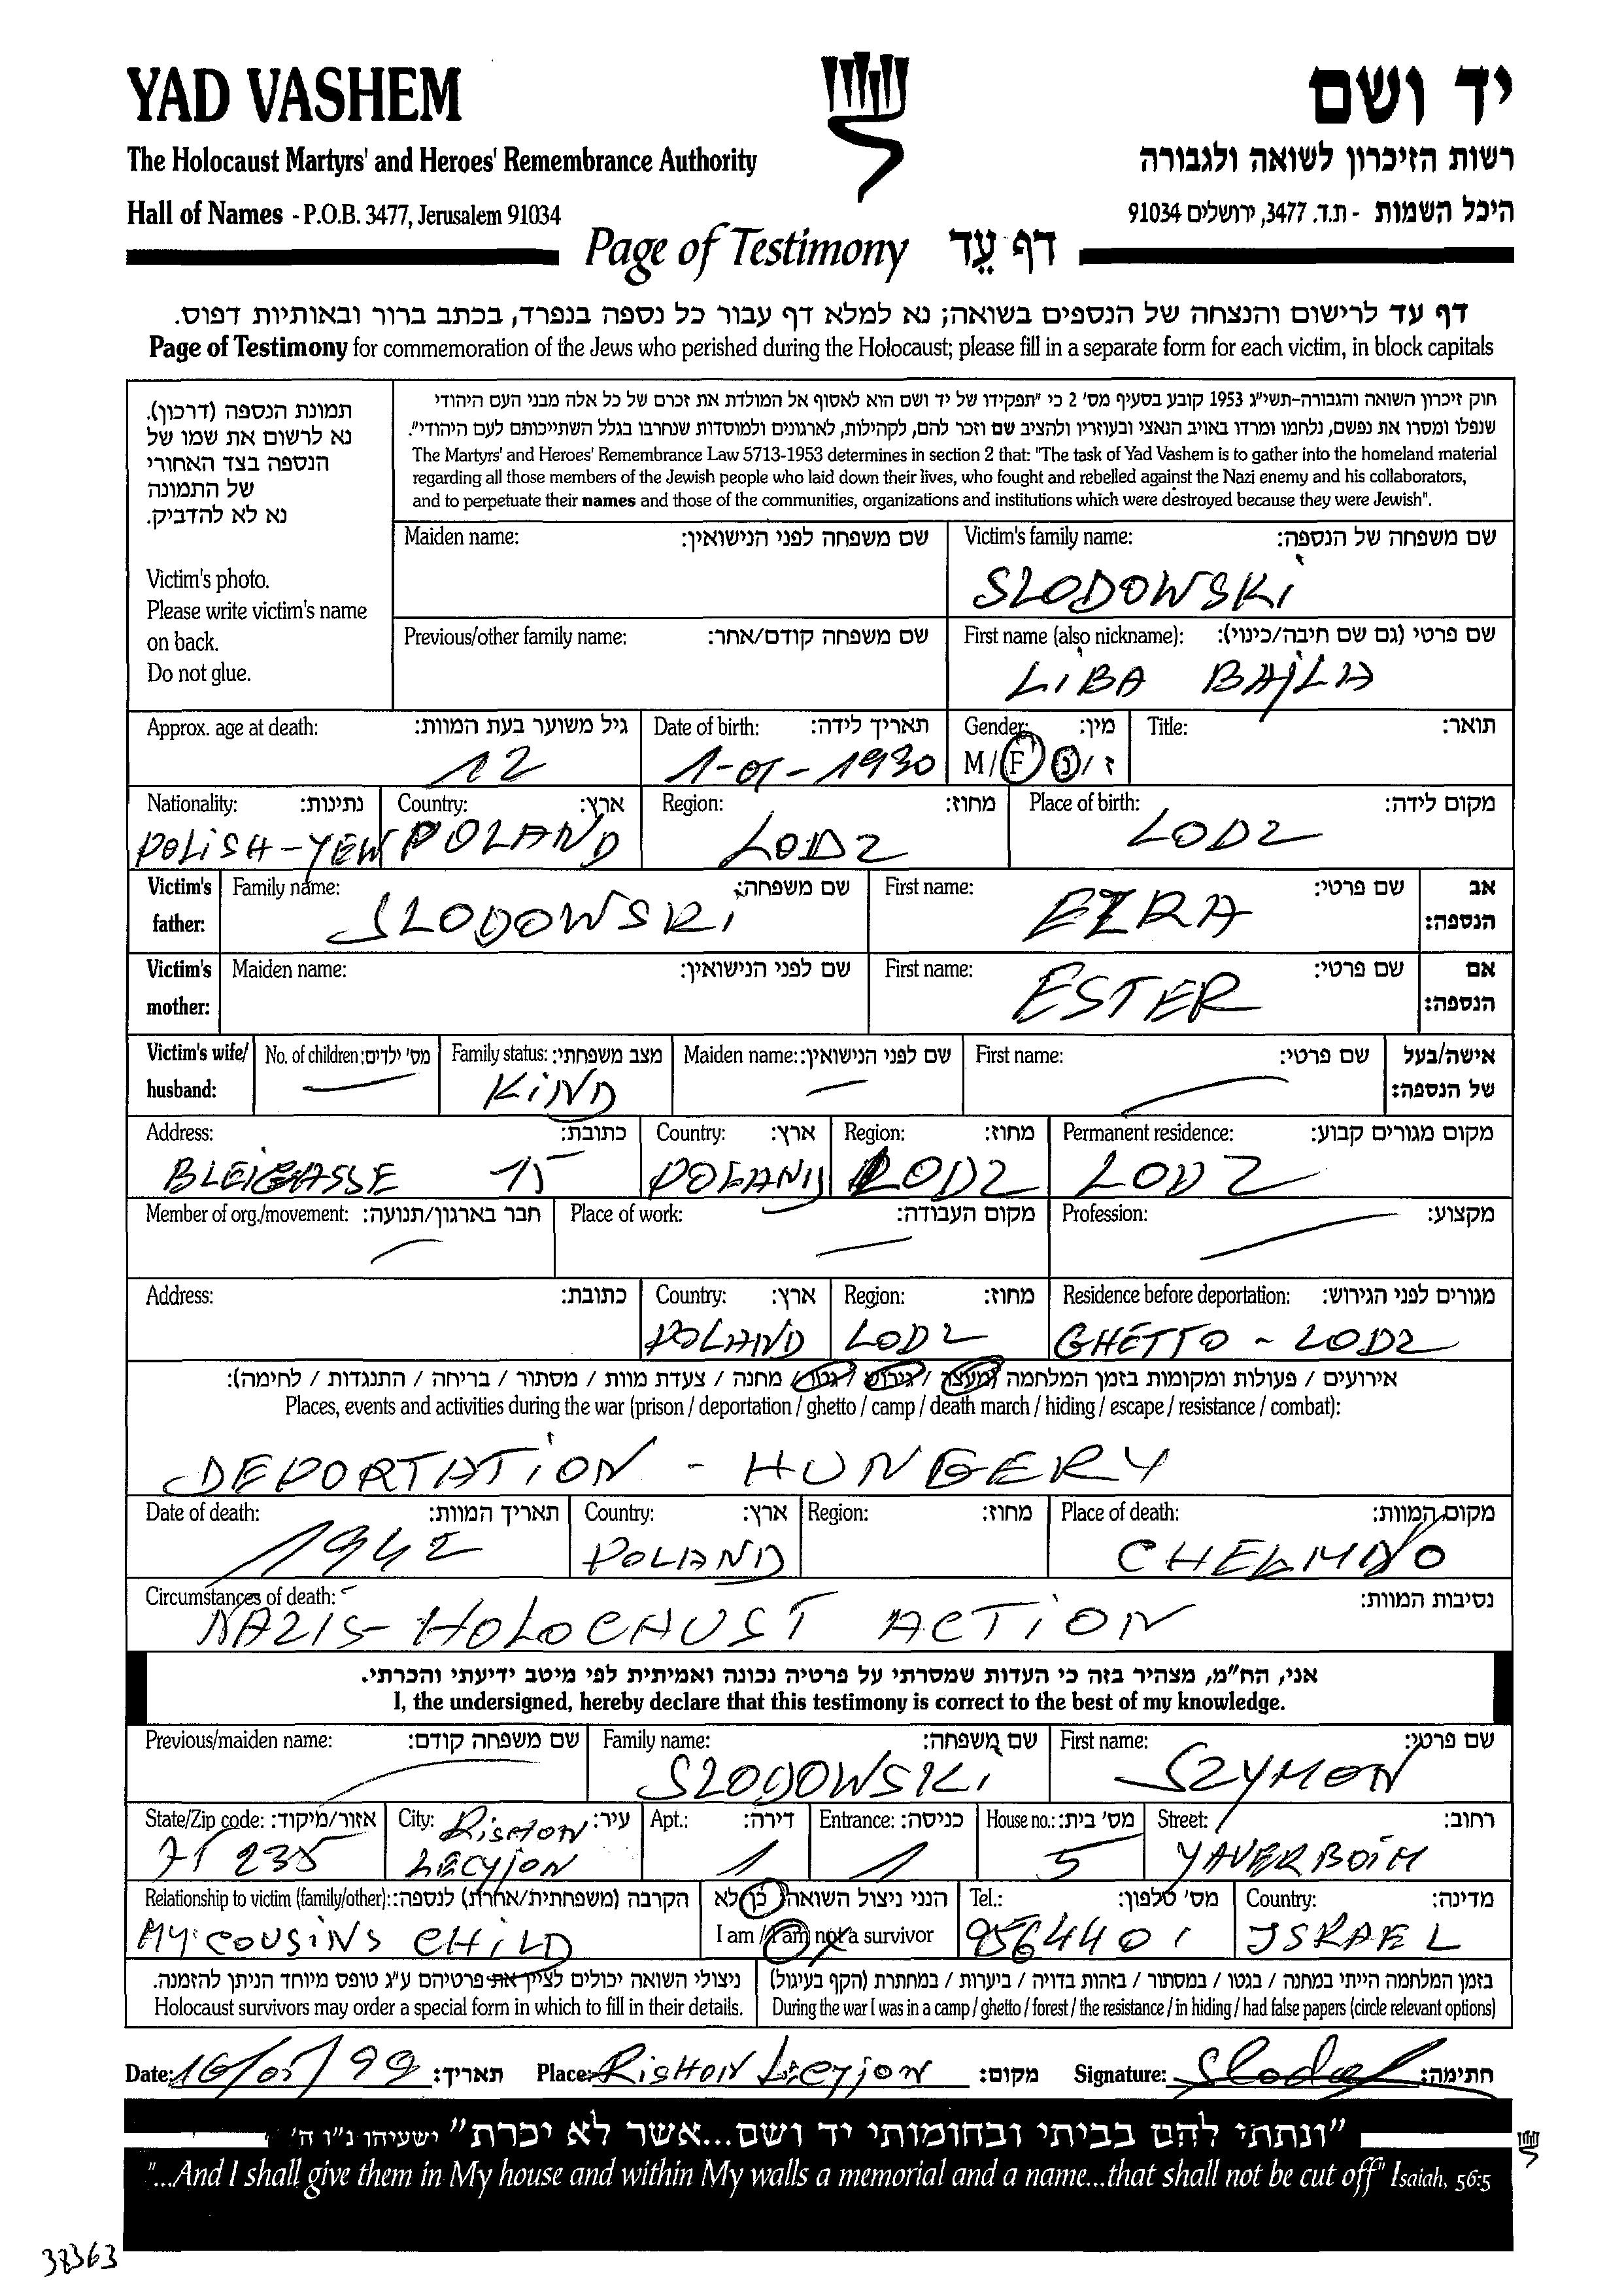 YAD VASHEM
יד ושם
The Holocaust Martyrs' and Heroes' Remembrance Authority
רשות הזיכרון לשואה ולגבורה
Hall of Names - P.O.B. 3477, Jerusalem 91034
היכל השמות - ת.ד. 3477, ירושלים 91034
Page of Testimony דף עֵד
דף עד לרישום והנצחה של הנספים בשואה; נא למלא דף עבור כל נספה בנפרד, בכתב ברור ובאותיות דפוס.
Page of Testimony for commemoration of the Jews who perished during the Holocaust; please fill in a separate form for each victim, in block capitals
תמונת הנספה (דרכון).
נא לרשום את שמו של
הנספה בצד האחורי
של התמונה
נא לא להדביק.
Victim's photo.
Please write victim's name
on back.
Do not glue.
חוק זיכרון השואה והגבורה-תשי"ג 1953 קובע בסעיף מס' 2 כי "תפקידו של יד ושם הוא לאסוף אל המולדת את זכרם של כל אלה מבני העם היהודי
שנפלו ומסרו את נפשם, נלחמו ומרדו באויב הנאצי ובעוזריו ולהציב שם וזכר להם, לקהילות, לארגונים ולמוסדות שנחרבו בגלל השתייכותם לעם היהודי".
The Martyrs' and Heroes' Remembrance Law 5713-1953 determines in section 2 that: "The task of Yad Vashem is to gather into the homeland material
regarding all those members of the Jewish people who laid down their lives, who fought and rebelled against the Nazi enemy and his collaborators,
and to perpetuate their names and those of the communities, organizations and institutions which were destroyed because they were Jewish".
Maiden name: שם משפחה לפני הנישואין:
Victim's family name: שם משפחה של הנספה:
SLODOWSKI
Previous/other family name: שם משפחה קודם/אחר:
First name (also nickname): שם פרטי (גם שם חיבה/כינוי):
LIBA BAJLA
Approx. age at death: גיל משוער בעת המוות:
12
Date of birth: תאריך לידה:
1-01-1930
Gender: מין:
M/F נ/ז
Title: תואר:
Nationality: נתינות:
POLISH-YEW
Country: ארץ:
POLAND
Region: מחוז:
LODZ
Place of birth: מקום לידה:
LODZ
Victim's father:
Family name: שם משפחה:
SLODOWSKI
First name: שם פרטי:
EZRA
אב הנספה:
Victim's mother:
Maiden name: שם לפני הנישואין:
First name: שם פרטי:
ESTER
אם הנספה:
Victim's wife/ husband:
No. of children: מס' ילדים:
Family status: מצב משפחתי:
KIND
Maiden name: שם לפני הנישואין:
First name: שם פרטי:
אישה/בעל של הנספה:
Address: כתובת:
BLEIGASSE 15
Country: ארץ:
POLAND
Region: מחוז:
LODZ
Permanent residence: מקום מגורים קבוע:
LODZ
Member of org./movement: חבר בארגון/תנועה:
Place of work: מקום העבודה:
Profession: מקצוע:
Address: כתובת:
Country: ארץ:
POLAND
Region: מחוז:
LODZ
Residence before deportation: מגורים לפני הגירוש:
GHETTO - LODZ
אירועים / פעולות ומקומות בזמן המלחמה (מעצר / גירוש / גטו / מחנה / צעדת מוות / מסתור / בריחה / התנגדות / לחימה):
Places, events and activities during the war (prison / deportation / ghetto / camp / death march / hiding / escape / resistance / combat):
DEPORTATION - HUNGERY
Date of death: תאריך המוות:
1942
Country: ארץ:
POLAND
Region: מחוז:
Place of death: מקום המוות:
CHELMNO
Circumstances of death: נסיבות המוות:
NAZIS-HOLOCAUST ACTION
אני, הח"מ, מצהיר בזה כי העדות שמסרתי על פרטיה נכונה ואמיתית לפי מיטב ידיעתי והכרתי.
I, the undersigned, hereby declare that this testimony is correct to the best of my knowledge.
Previous/maiden name: שם משפחה קודם:
Family name: שם משפחה:
SLODOWSKI
First name: שם פרטי:
SZYMON
State/Zip code: אזור/מיקוד:
75 235
City: עיר:
Rishon
Lecyjon
Apt.: דירה:
1
Entrance: כניסה:
1
House no.: מס' בית:
5
Street: רחוב:
YAVERBOIM
Relationship to victim (family/other): הקרבה (משפחתית/אחרת) לנספה:
MY COUSINS CHILD
הנני ניצול השואה כן לא
I am / I am not a survivor
Tel.: מס' טלפון:
9564401
Country: מדינה:
ISRAEL
ניצולי השואה יכולים לציין את פרטיהם ע"ג טופס מיוחד הניתן להזמנה.
Holocaust survivors may order a special form in which to fill in their details.
בזמן המלחמה הייתי במחנה / בגטו / במסתור / בזהות בדויה / ביערות / במחתרת (הקף בעיגול)
During the war I was in a camp / ghetto / forest / the resistance / in hiding / had false papers (circle relevant options)
Date: 16/05/99 תאריך: Place: Rishon Lecyjon מקום: Signature: חתימה:
"ונתתי להם בביתי ובחומותי יד ושם...אשר לא יכרת" ישעיהו נ"ו ה'
"...And I shall give them in My house and within My walls a memorial and a name...that shall not be cut off" Isaiah, 56:5